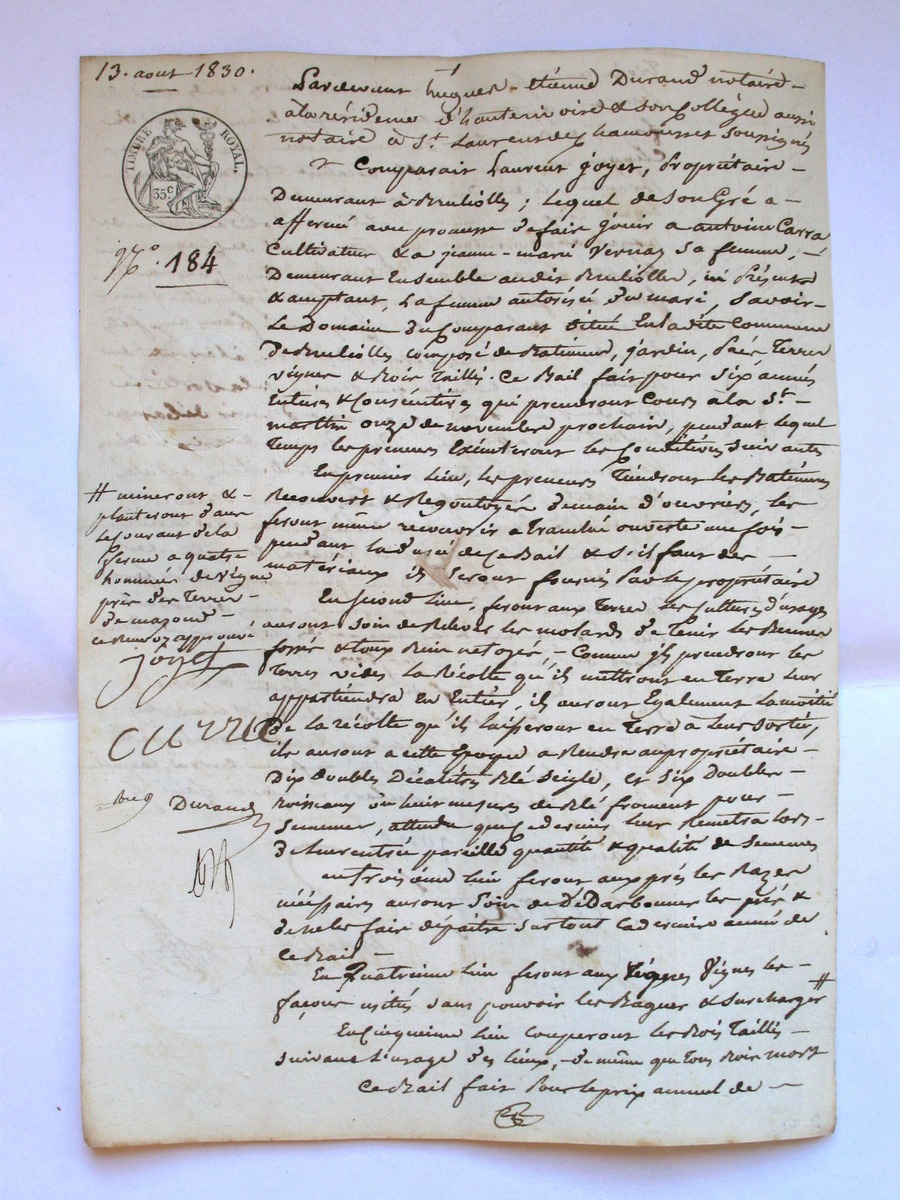 13. aout 1830.
TIMBRE ROYAL.
35 c
N.º 184
Pardevant hugues-etienne Durand notaire
à la résidence d'hauterivoire & son Collègue aussi
notaire à St. Laurent de Chamousset soussignés
Comparait Laurent Goyet, Propriétaire
Demeurant à Brulliolles ; Lequel de son Gré a
affermé avec promesse de faire jouir a antoine Carra
Cultivateur & a jeanne-marie Vernay sa femme,
Demeurant Ensemble audit Brulliolles, ici Présents
& acceptant, La femme autorisée du mari, Savoir
Le Domaine du Comparant situé En ladite Commune
De Brulliolles composé de Batiment, jardin, Prés Terres
vignes & Bois Taillis. Ce Bail fait pour six années
Entières & Consécutives qui prendront Cours à la St.
marttin onze de novembre prochain, pendant lequel
Temps les preneurs Exécuteront les Conditions suivantes
En premier lieu, les preneurs Tiendront les Batiments
Recouvert & Regoutoyés de main d'ouvriers, les
feront même recouvrir a Tranché ouverte une fois
pendant la durée de ce Bail & s'il faut des
matériaux ils seront fournis Par le propriétaire
En second lieu, feront aux Terres les Cultures d'usages
auront soin de Relever les molards de Tenir les
fossés & Comme ils prendront les
Terres vides La Récolte qu'ils mettront en Terre leur
appartiendra En Entier, ils auront Egalement la moitié
de la récolte qu'ils laisseront en Terre a leur sortie,
ils auront a cette Epoque a Rendre au propriétaire
Dix doubles Décalitres Blé seigle, et six Doubles
Boisseaux ou huit mesures de Blé froment pour
semence, attendu que ce dernier leur Remettra lors
de leur entrée pareille quantité & qualité de semences
en troisième lieu feront aux prés les Razes
nécessaires auront soin de Dédarbonner les prés &
de ne les faire dépaitre surtout la dernière année de
ce Bail
En Quatrieme lieu feront aux Vignes les
façons usités sans pouvoir les Raguer & surcharger #
En Cinquieme lieu couperont les Bois Taillis
suivant l'usage des lieux, de même que tous Bois mort
Ce Bail fait Pour le prix annuel de
# mineront &
planteront dans
le courant de la
ferme a quatre
hommées de vigne
près des Terres
de mazoud
ce Renvoy approuvé
joyet
carra
Durand